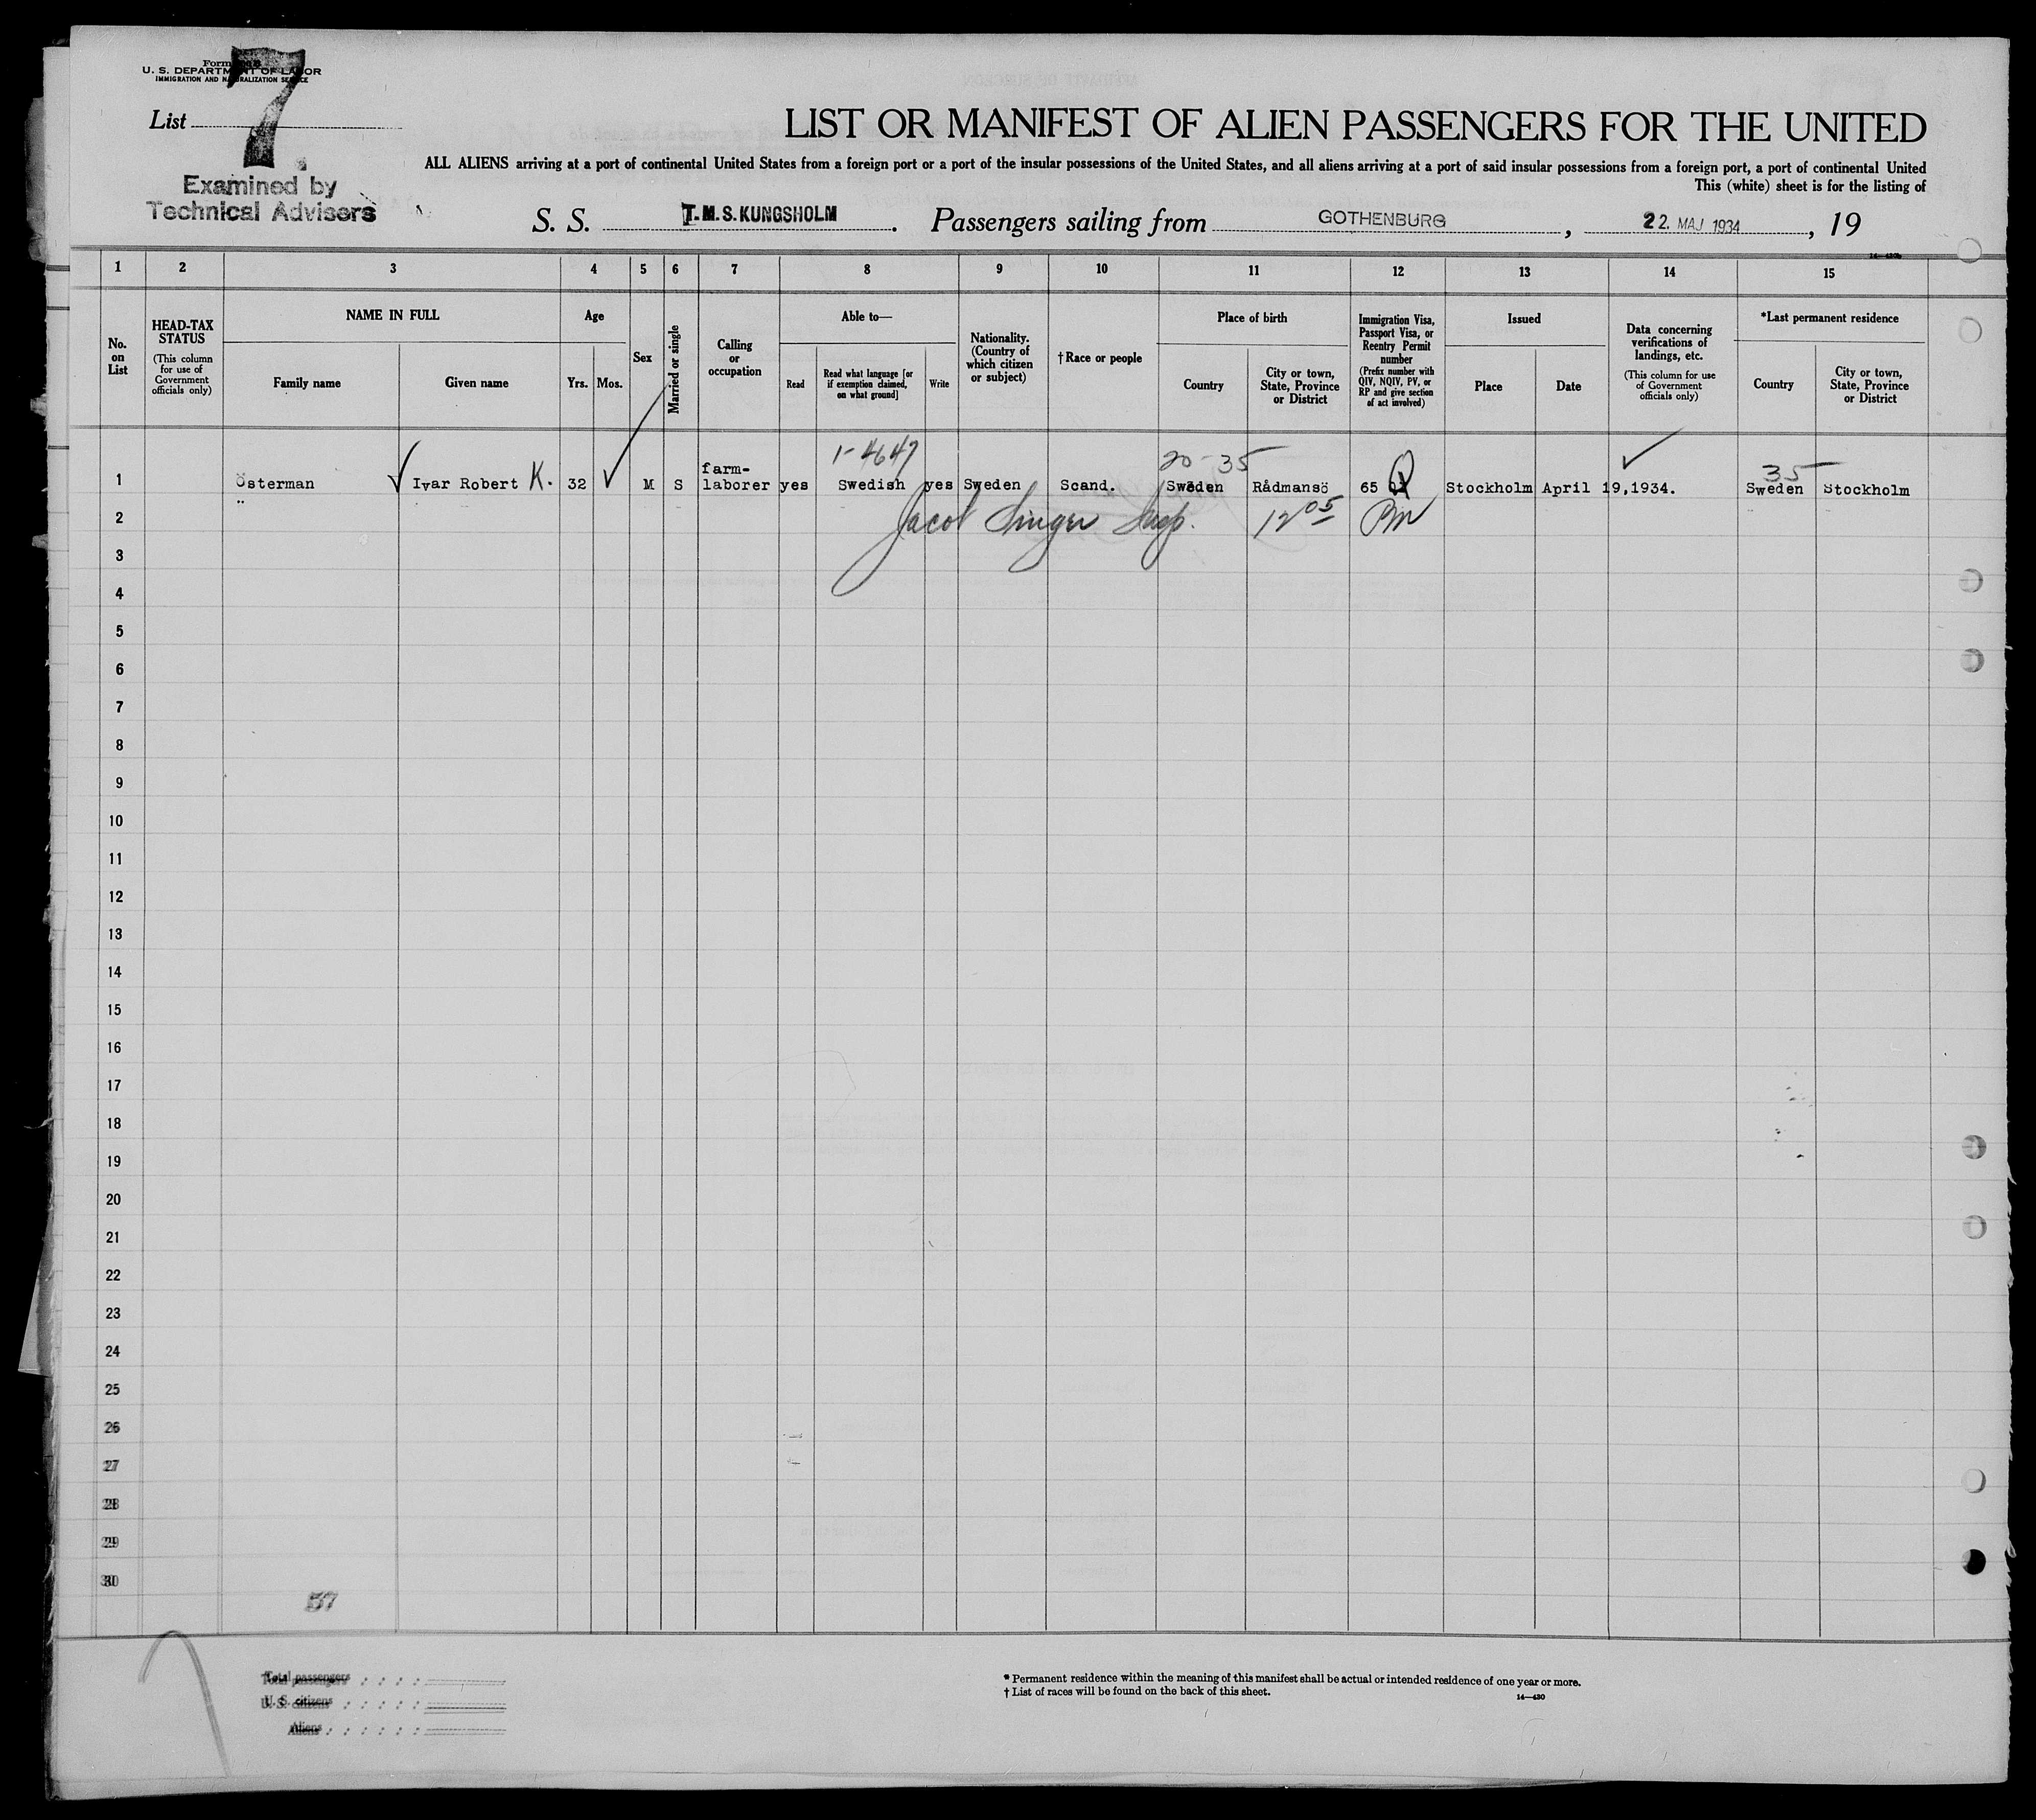 7
Form
U. S. DEPARTMENT OF LABOR
IMMIGRATION AND NATURALIZATION SERVICE
List
Examined by
Technical Advisers
LIST OR MANIFEST OF ALIEN PASSENGERS FOR THE UNITED
ALL ALIENS arriving at a port of continental United States from a foreign port or a port of the insular possessions of the United States, and all aliens arriving at a port of said insular possessions from a foreign port, a port of continental United
This (white) sheet is for the listing of
S. S. T.M.S. KUNGSHOLM . Passengers sailing from GOTHENBURG , 22. MAJ 1934 , 19
1 2 3 4 5 6 7 8 9 10 11 12 13 14 15
No. on List
HEAD-TAX STATUS (This column for use of Government officials only)
NAME IN FULL
Family name
Given name
Age
Yrs.
Mos.
Sex
Married or single
Calling or occupation
Able to—
Read
Read what language [or if exemption claimed, on what ground]
Write
Nationality. (Country of which citizen or subject)
†Race or people
Place of birth
Country
City or town, State, Province or District
Immigration Visa, Passport Visa, or Reentry Permit number (Prefix number with QIV, NQIV, PV, or RP and give section of act involved)
Issued
Place
Date
Data concerning verifications of landings, etc. (This column for use of Government officials only)
*Last permanent residence
Country
City or town, State, Province or District
1-4647 20-35 35
1 Österman Ivar Robert K. 32 M S farm-laborer yes Swedish yes Sweden Scand. Sweden Rådmansö 65 Q Stockholm April 19,1934. Sweden Stockholm
2 Jacob Singer Insp. 12 05 PM
3
4
5
6
7
8
9
10
11
12
13
14
15
16
17
18
19
20
21
22
23
24
25
26
27
28
29
30
57
Total passengers
U. S. citizens
Aliens
* Permanent residence within the meaning of this manifest shall be actual or intended residence of one year or more.
† List of races will be found on the back of this sheet.
14—430